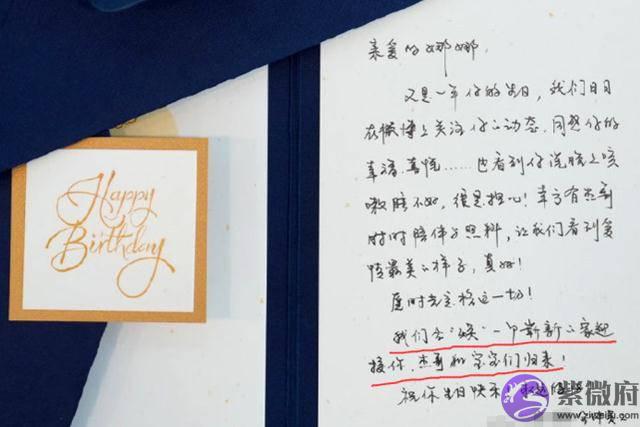 Happy
Birthday
亲爱的娜娜,
又是一年你的生日,我们日日
在微博上关注你的动态.同想你的
幸福、喜悦……也看到你说晚上咳
嗽睡不好,很是担心!幸亏有杰哥
时时陪伴与照料,让我们看到爱
情最美的样子,真好!
愿时光定格这一切!
我们会"焕"一个崭新的家迎
接你、杰哥和宝宝们归来!
祝你生日快乐!
紫微府
www.ziweifu.com